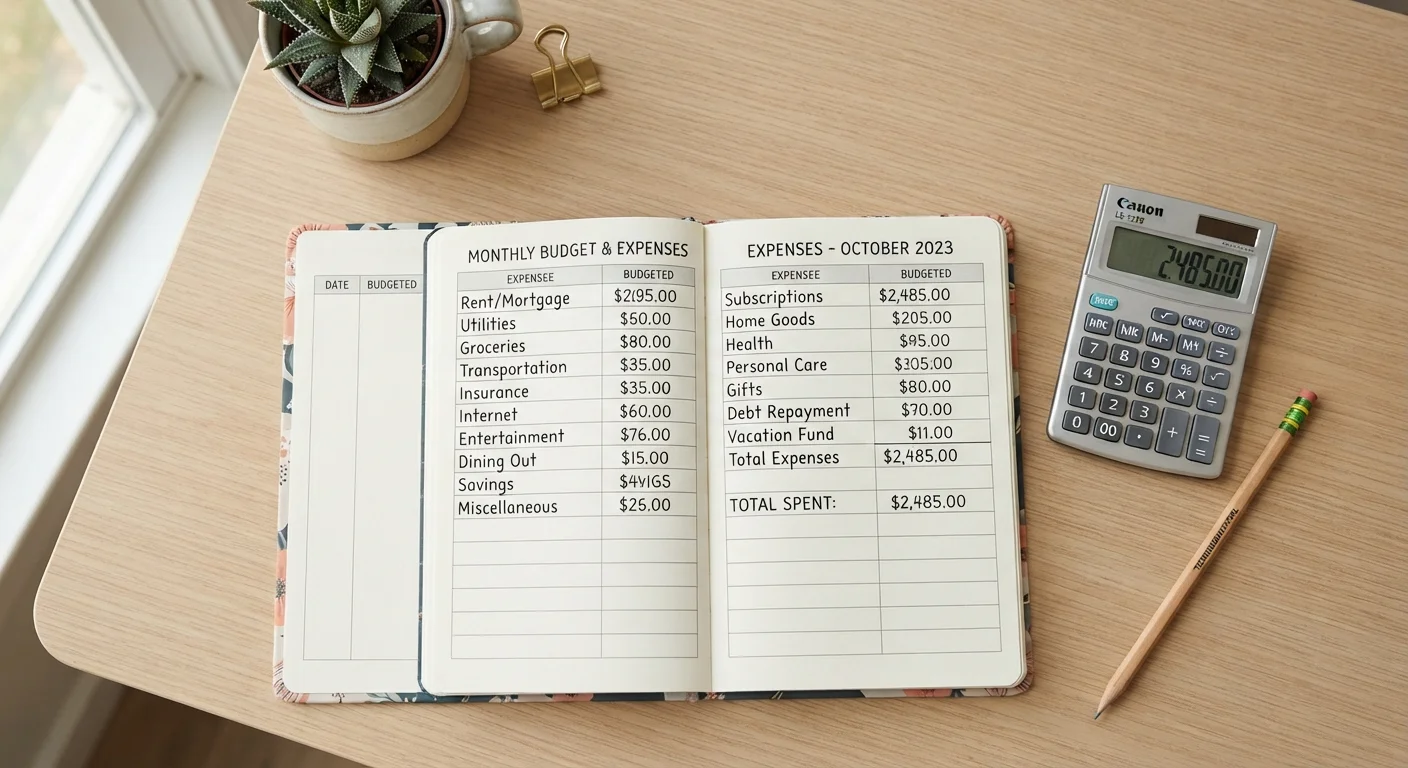 DATE BUDGETED
MONTHLY BUDGET & EXPENSES
EXPENSEE BUDGETED
Rent/Mortgage
Utilities $50.00
Groceries $80.00
Transportation $35.00
Insurance $35.00
Internet $60.00
Entertainment $76.00
Dining Out $15.00
Savings
Miscellaneous $25.00
EXPENSES - OCTOBER 2023
EXPENSEE BUDGETED
Subscriptions $2,485.00
Home Goods $205.00
Health $95.00
Personal Care $305.00
Gifts $80.00
Debt Repayment $70.00
Vacation Fund $11.00
Total Expenses $2,485.00
TOTAL SPENT: $2,485.00
Canon
2,485.00
7 8 9 % √
4 5 6 × ÷
1 2 3
0 00 . + =